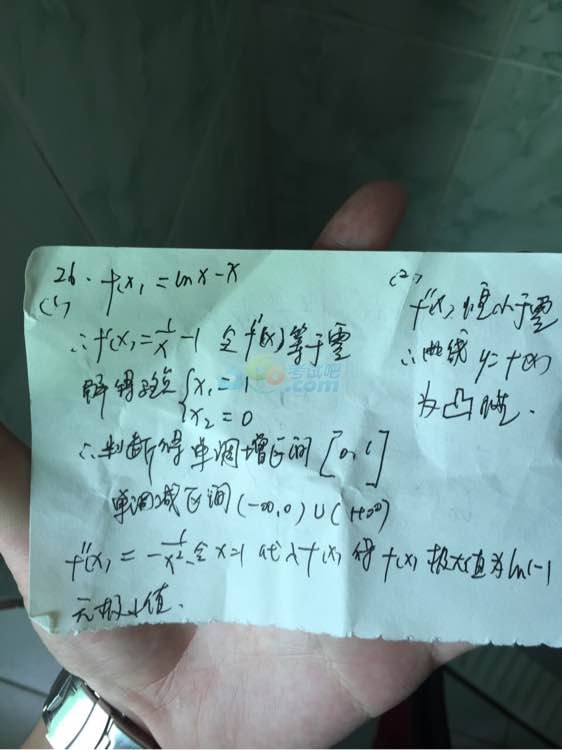 26. f(x) = ln x - x
(1)
∴ f'(x) = 1/x - 1 令 f'(x) 等于零
解得驻点 { x₁ = 1
x₂ = 0
∴ 判断得单调增区间 [0, 1]
单调减区间 (-∞, 0) ∪ (1+∞)
f''(x) = -1/x² 令 x=1 代入 f(x) 得 f(x) 极大值为 ln1-1
无极小值.
(2)
f''(x) 恒小于零
∴ 曲线 y = f(x)
为凸
考试吧
.com